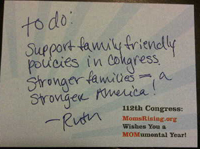 to do:
Support family friendly
policies in congress.
Stronger families = a
Stronger America!
—Ruth
112th Congress:
MomsRising.org
Wishes You a
MOMumental Year!